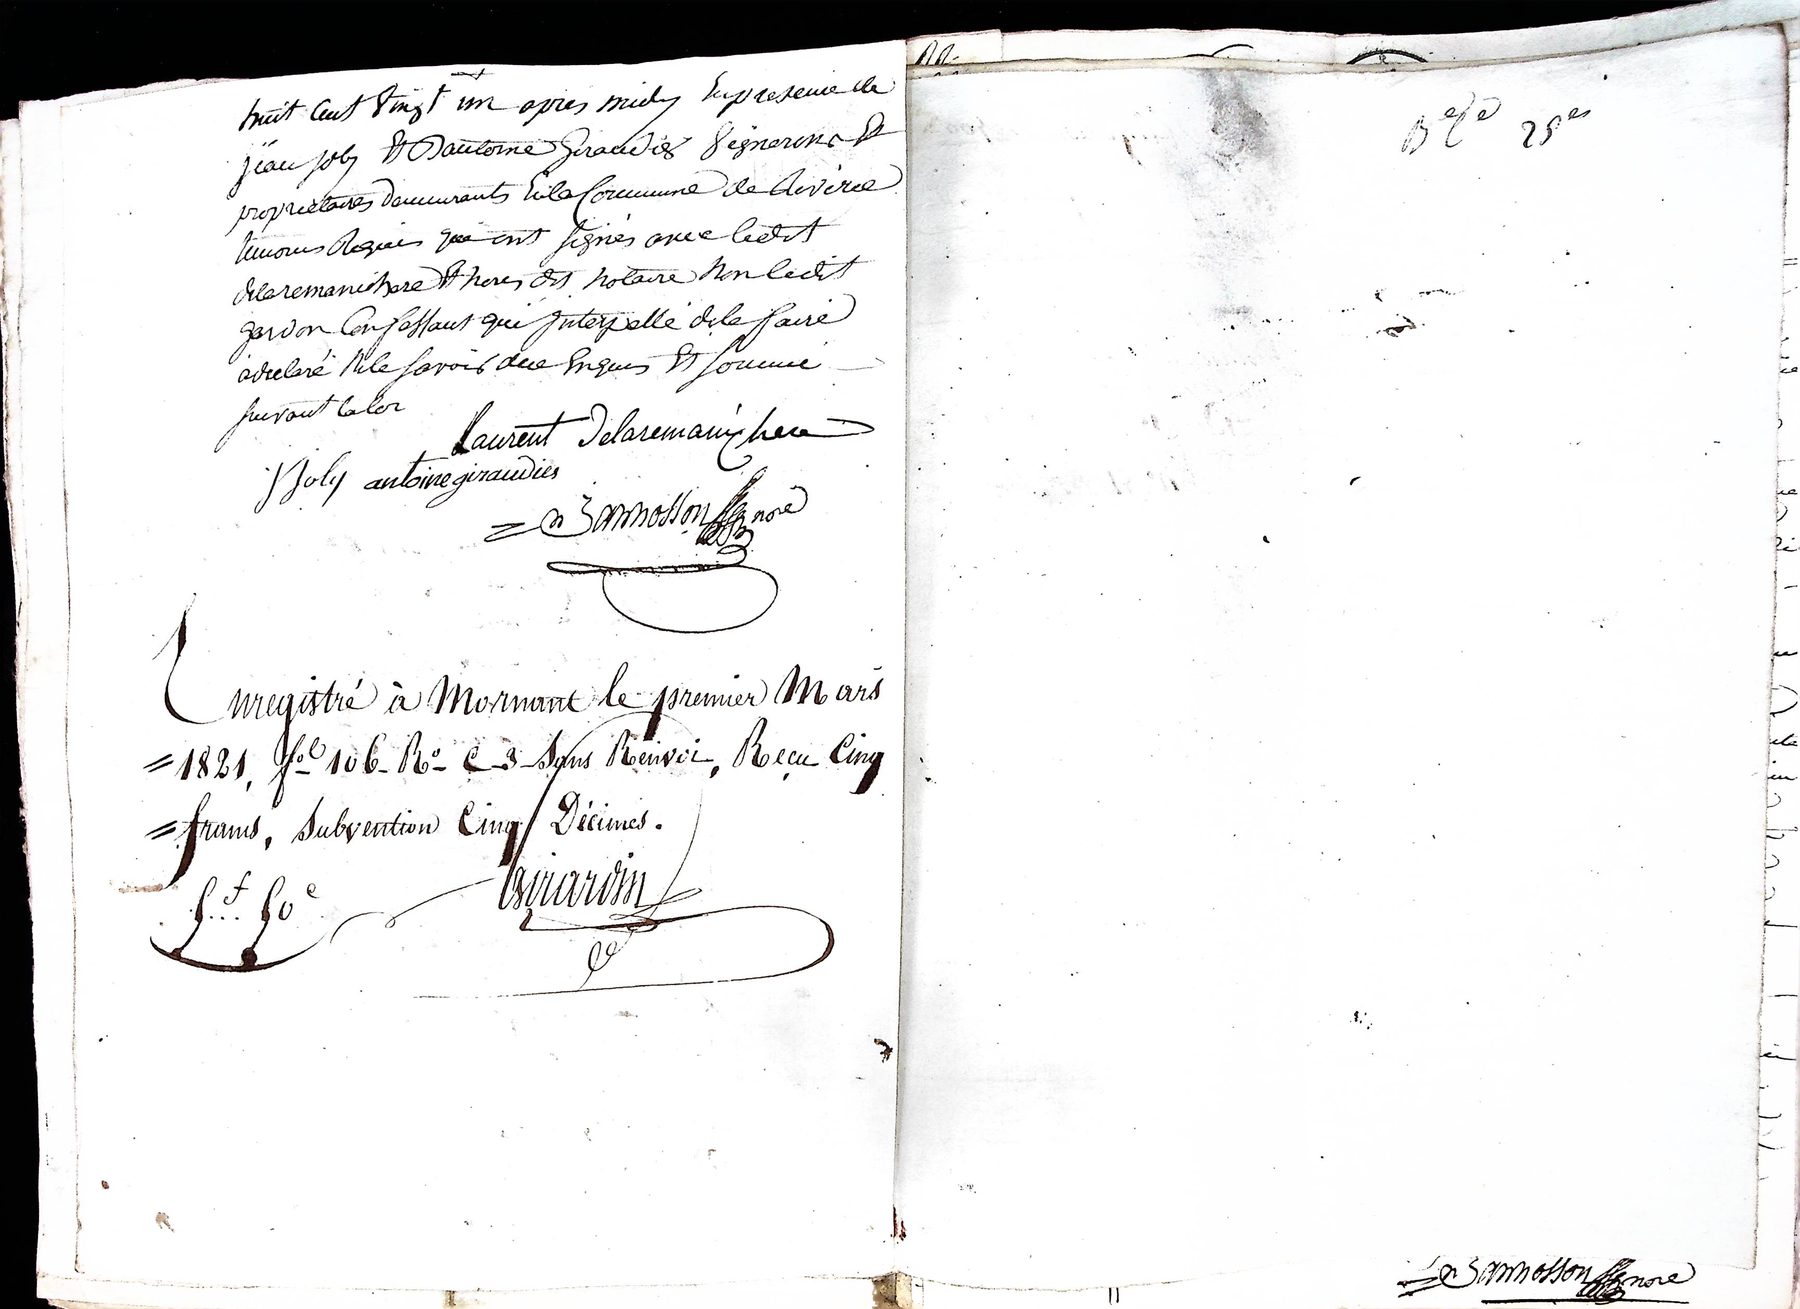 huit cent vingt un apres midy En presence de
jean joly Et D'antoine Giraudier Vignerons Et
proprietaires demeurants En la Commune de Riverie
temoins Requis qui ont signés avec ledit
delaremanichere Et nous dit notaire non ledit
Confessant qui interpellé de le faire
a declaré ne le savoir de ce Enquis Et sommé
suivant la loi
Laurent Delaremanichere
J Joly antoine giraudier
nore
Enregistré à Mornant le premier Mars
1821, fol 106 Ro C 3 Sans Renvoi, Reçu Cinq
francs, Subvention Cinq Décimes.
Girardin
5.f 50c
nore